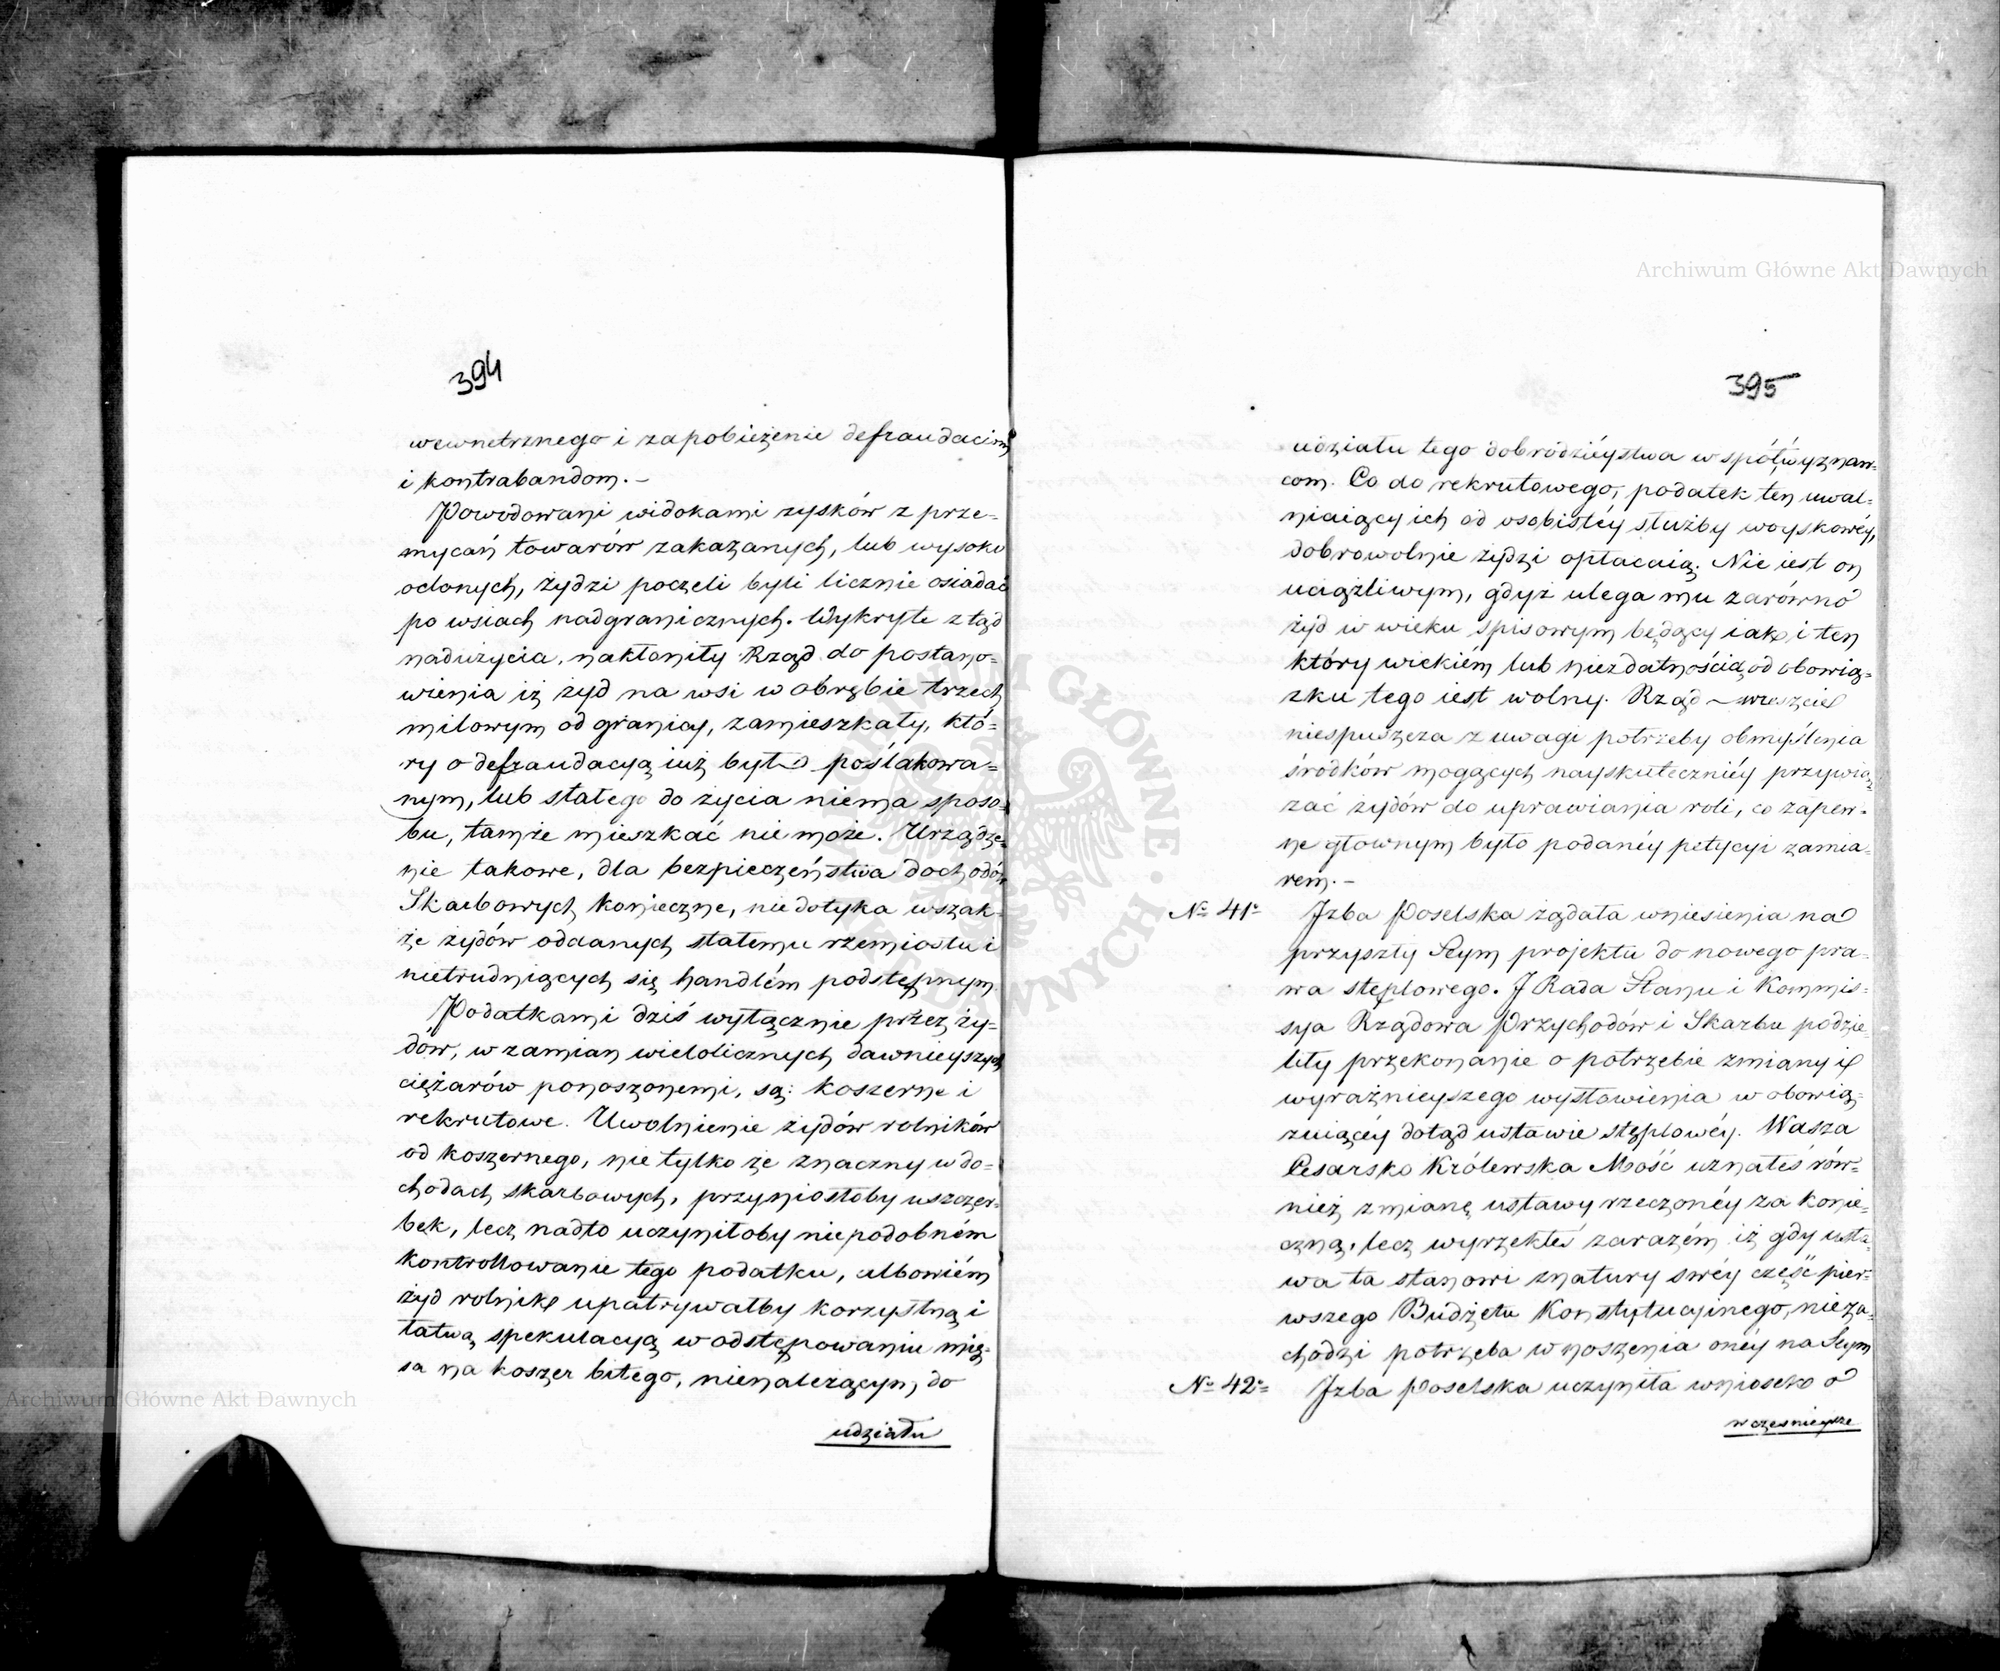 394
wewnetrznego i zapobieżenie defraudaciom
i kontrabandom. –
Powodowani widokami zysków z prze-
mycań towarów zakazanych, lub wysoko
oclonych, żydzi poczeli byli licznie osiadać
po wsiach nadgranicznych. Wykryte ztąd
nadużycia, nakłoniły Rząd do postano-
wienia iż żyd na wsi w obrębie trzech
milowym od granicy, zamieszkały, któ-
ry o defraudacyą iuż był poślakowa-
nym, lub stałego do życia niema sposo-
bu, tamże mieszkać nie może. Urządze-
nie takowe, dla bezpieczeństwa dochodów
Skarbowych konieczne, nie dotyka wszak-
że żydów oddanych stałemu rzemiosłu i
nietrudniących się handlém podstępnym.
Podatkami dziś wyłącznie przez ży-
dów, w zamian wielolicznych dawnieyszych
ciężarów ponoszonemi, są: koszerne i
rekrutowe. Uwolnienie żydów rolników
od koszernego, nie tylko że znaczny w do-
chodach skarbowych, przyniosłoby uszczer-
bek, lecz nadto uczyniłoby niepodobném
kontrollowanie tego podatku, albowiém
żyd rolnik upatrywałby korzystną i
łatwą spekulacyą w odstępowaniu mię-
sa na koszer bitego, nienależącym do
udziału
395
udziału tego dobrodzieystwa współwyznaw-
com. Co do rekrutowego, podatek ten uwal-
niaiący ich od osobistéy służby woyskowéy,
dobrowolnie żydzi opłacaią. Nie iest on
uciążliwym, gdyż ulega mu zarówno
żyd w wieku spisowym będący iak i ten
który wiekiém lub niezdatnością od obowią-
zku tego iest wolny. Rząd wreszcie
niespuszcza z uwagi potrzeby obmyślenia
środków mogących nayskuteczniéy przywią-
zać żydów do uprawiania roli, co zapew-
ne głownym było podanéy petycyi zamia-
rem. –
No 41o Izba Poselska żądała wniesienia na
przyszły Seym projektu do nowego pra-
wa stęplowego. I Rada Stanu i Kommis-
sya Rządowa Przychodów i Skarbu podzie-
liły przekonanie o potrzebie zmiany i
wyraźnieyszego wysłowienia w obowią-
zuiącéy dotąd ustawie stęplowéy. Wasza
Cesarsko Królewska Mość uznałeś rów-
nież zmianę ustawy rzeczonéy za konie-
czną, lecz wyrzekłeś zarazém iż gdy usta-
wa ta stanowi znatury swéy część pier-
wszego Budżetu Konstytucyinego, nieza-
chodzi potrzeba wnoszenia onéy na Seym
No 42o Izba Poselska uczyniła wniosek o
wcześnieysze
Archiwum Główne Akt Dawnych
Archiwum Główne Akt Dawnych
ARCHIWUM GŁÓWNE AKT DAWNYCH